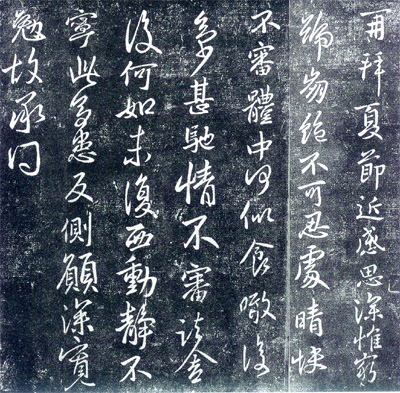 再拜夏節近感思深惟窮
號崩絕不可忍處晴快
不審體中何似食噉復
多甚馳情不審諸舍
復何如未復西動靜不
寧此多患反側願深寬
勉故承問